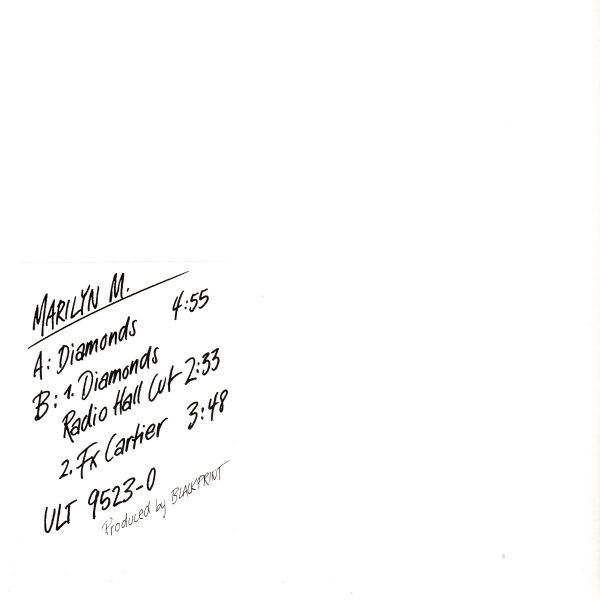 MARILYN M.
A: Diamonds 4:55
B: 1. Diamonds
Radio Hall Cut 2:33
2. Fx Cartier 3:48
ULT 9523-0
Produced by BLACKPRINT